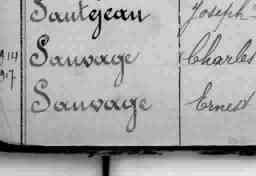 Sautejeau Joseph
Sauvage Charles
Sauvage Ernest